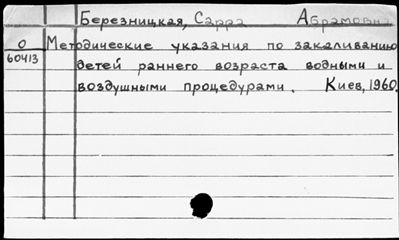 Березницкая, Сарра Абрамовна
О Методические указания по закаливанию
60413 детей раннего возраста водными и
воздушными процедурами. Киев, 1960.